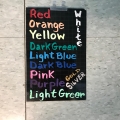 Red
Orange
Yellow
Dark Green
Light Blue
Dark Blue
Pink
Purple
Light Green
White
Gold
Silver